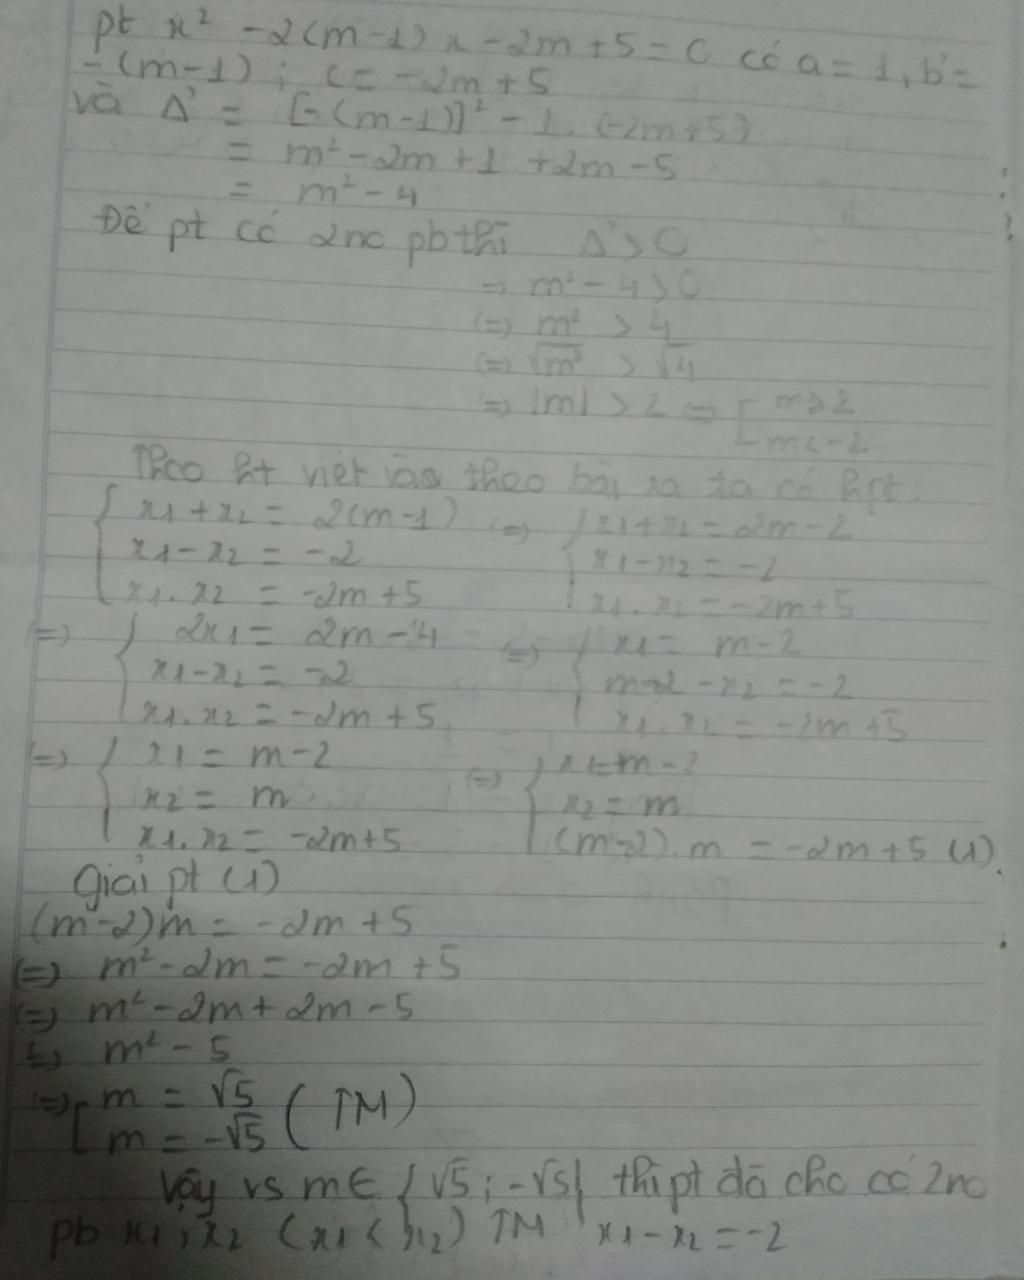 pt x² -2(m-1)x -2m+5=0 có a=1, b'=
-(m-1); c=-2m+5
và Δ' = [-(m-1)]² -1.(-2m+5)
= m²-2m+1+2m-5
= m²-4
Để pt có 2no pb thì Δ'>0
=> m²-4>0
(=) m² > 4
(=) √m² > √4
=> |m| > 2 => [ m>2
m<-2
Theo ht viét và theo bài ra ta có hpt:
{ x1+x2 = 2(m-1) (=) { x1+x2 = 2m-2
x1-x2 = -2 x1-x2 = -2
x1.x2 = -2m+5 x1.x2 = -2m+5
(=) { 2x1 = 2m-4 (=) { x1 = m-2
x1-x2 = -2 m-2-x2 = -2
x1.x2 = -2m+5 x1.x2 = -2m+5
(=) { x1 = m-2 (=) { x1=m-2
x2 = m x2 = m
x1.x2 = -2m+5 (m-2).m = -2m+5 (1)
Giải pt (1)
(m-2)m = -2m+5
(=) m²-2m = -2m+5
(=) m²-2m+2m-5
(=) m²-5
(=) [ m = √5 (TM)
m = -√5
Vậy vs m∈ {√5;-√5} thì pt đã cho có 2no
pb x1, x2 (x1<x2) TM x1-x2=-2